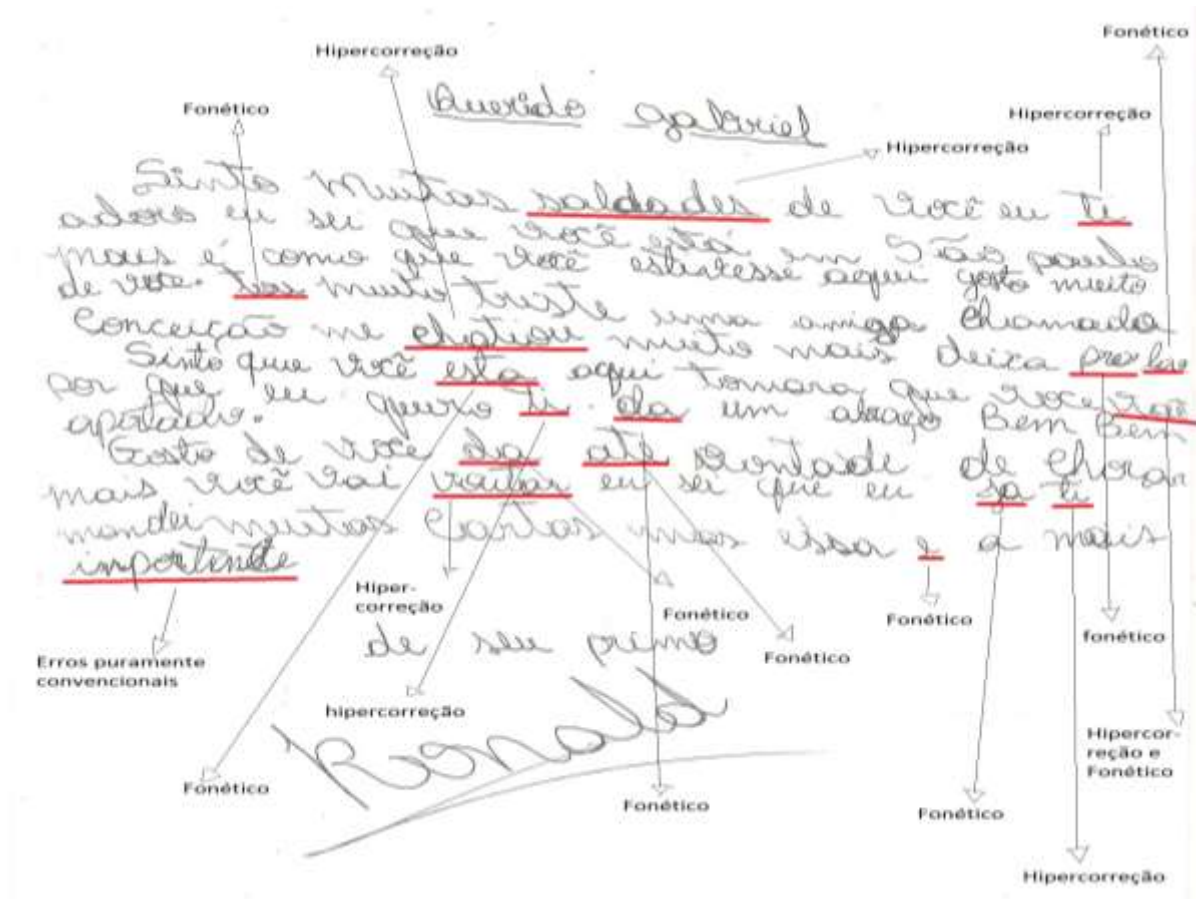 Fonético
Hipercorreção
Fonético
Querido gabriel
Hipercorreção
Hipercorreção
Sinto muitas saldades de você eu ti
adoro eu sei que você está em São paulo
mais é como que você estivesse aqui gosto muito
de você. tou muito triste uma amiga chamada
Conceição me chatiou muito mais deixa pra
Sinto que você esta aqui tomara que voce
por que eu quero ti da um abraço Bem Bem
apertado.
Gosto de você da ate vontade de chorar
mais você vai eu sei que eu ja ti
mandei muitas Cartas mas essa e a mais
Hiper-
correção
Fonético
Fonético
fonético
de seu primo
Fonético
Erros puramente
convencionais
hipercorreção
Ronald
Hipercor-
reção e
Fonético
Fonético
Fonético
Fonético
Hipercorreção